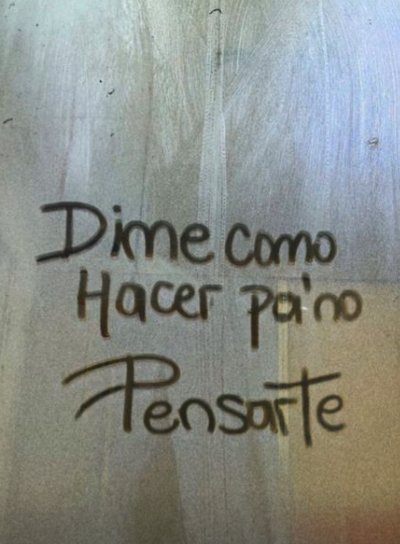 Dime como
Hacer pa'no
Pensarte